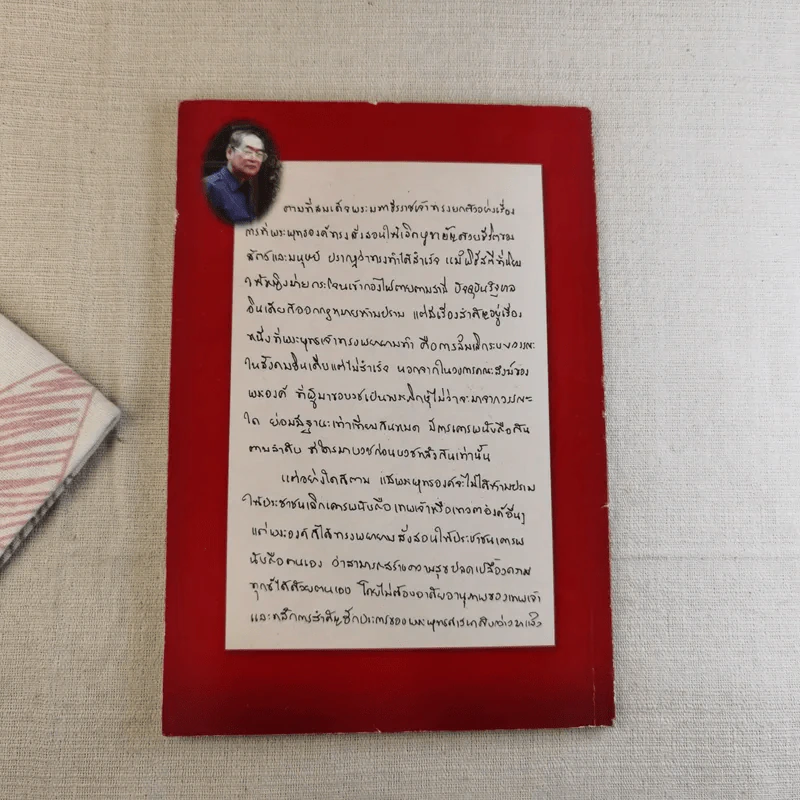 ตามที่สมเด็จพระมหาธีรราชเจ้าทรงยกตัวอย่างเรื่อง
การที่พระพุทธองค์ทรงสั่งสอนให้เลิกบูชายัญด้วยชีวิตของ
สัตว์และมนุษย์ ปรากฏว่าทรงทำได้สำเร็จ แม้พิธีสตีที่นิยม
ให้หญิงม่ายกระโจนเข้ากองไฟตายตามสามี ปัจจุบันรัฐบาล
อินเดียก็ออกกฎหมายห้ามปราม แต่มีเรื่องสำคัญอยู่เรื่อง
หนึ่งที่พระพุทธเจ้าทรงพยายามทำ คือการล้มเลิกระบบวรรณะ
ในสังคมอินเดียแต่ไม่สำเร็จ นอกจากในวงการคณะสงฆ์ของ
พระองค์ ที่ผู้มาขอบวชเป็นพระภิกษุไม่ว่าจะมาจากวรรณะ
ใด ย่อมมีฐานะเท่าเทียมกันหมด มีการเคารพนับถือกัน
ตามลำดับ ที่ใครมาบวชก่อนบวชหลังกันเท่านั้น
แต่อย่างใดก็ตาม แม้พระพุทธองค์จะไม่ได้ห้ามปราม
ให้ประชาชนเลิกเคารพนับถือเทพเจ้าหรือเทวดาองค์อื่นๆ
แต่พระองค์ก็ได้ทรงพยายามสั่งสอนให้ประชาชนเคารพ
นับถือตนเอง ว่าสามารถสร้างความสุขปลดเปลื้องความ
ทุกข์ได้ด้วยตนเอง โดยไม่ต้องอาศัยอานุภาพของเทพเจ้า
และหลักการสำคัญอีกประการของพระพุทธศาสนา